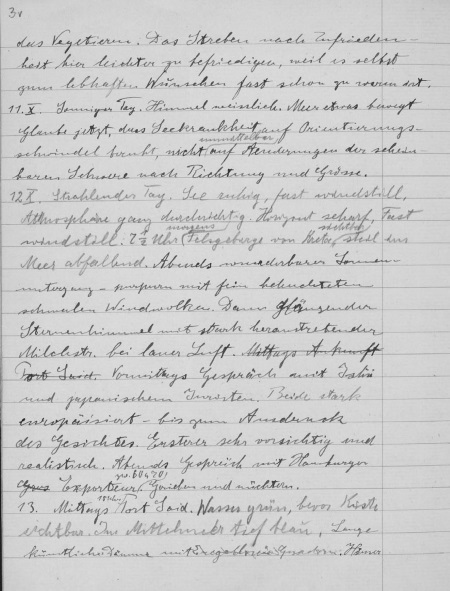 3v
das Vegetieren. Das Streben nach Zufrieden-
heit hier leichter zu befriedigen, weil es selbst
zum lebhaften Wünschen fast schon zu warm ist.
11. X. Sonniger Tag. Himmel weisslich. Meer etwas bewegt
Glaube jetzt, dass Seekrankheit auf Orientierungs-
schwindel beruht, nicht unmittelbar auf Aenderungen der schein
baren Schwere nach Richtung und Grösse.
12 X. Strahlender Tag. See ruhig, fast windstill,
Athmosphäre ganz durchsichtig. Horizont scharf, Fast
windstill. 7½ Uhr morgens Felsgebirge von Kreta, südlich steil ins
Meer abfallend. Abends wunderbarer Sonnen-
untergang – purpurn mit fein beleuchteten
schmalen Windwolken. Dann glänzender
Sternenhimmel mit stark heraustretender
Milchstr. bei lauer Luft. Mittags Ankunft
Port Said. Vormittags Gespräch mit
und japanischem Juristen. Beide stark
europäisiert – bis zum Ausdruck
des Gesichtes. Ersterer sehr vorsichtig und
realistisch. Abends Gespräch mit Hamburger
Exporteur. Gescheiden und nüchtern.
13. Mittags Port Said. Wasser grün, bevor Küste
sichtbar. Im Mittelmeer tief blau, Lange
künstliche Dämme mit